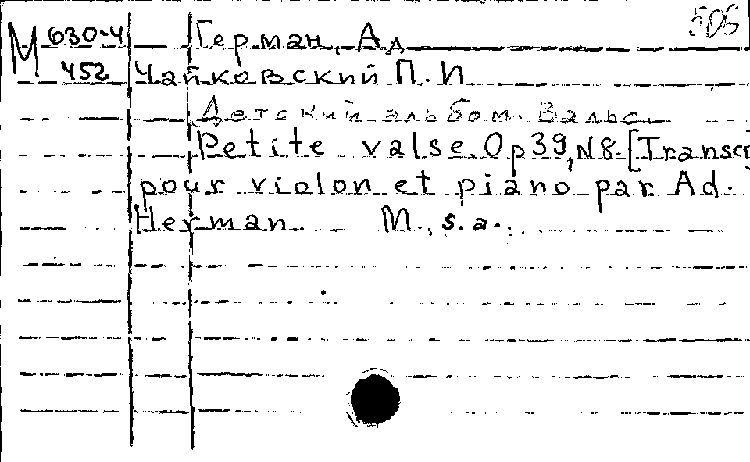 505
М 630-4 Герман, Ад
452 Чайковский П.И
Детский альбом. Вальс.
Petite valse. Op 39, N8. [Transcr
pour violon et piano par Ad.
Herman M., s.a.